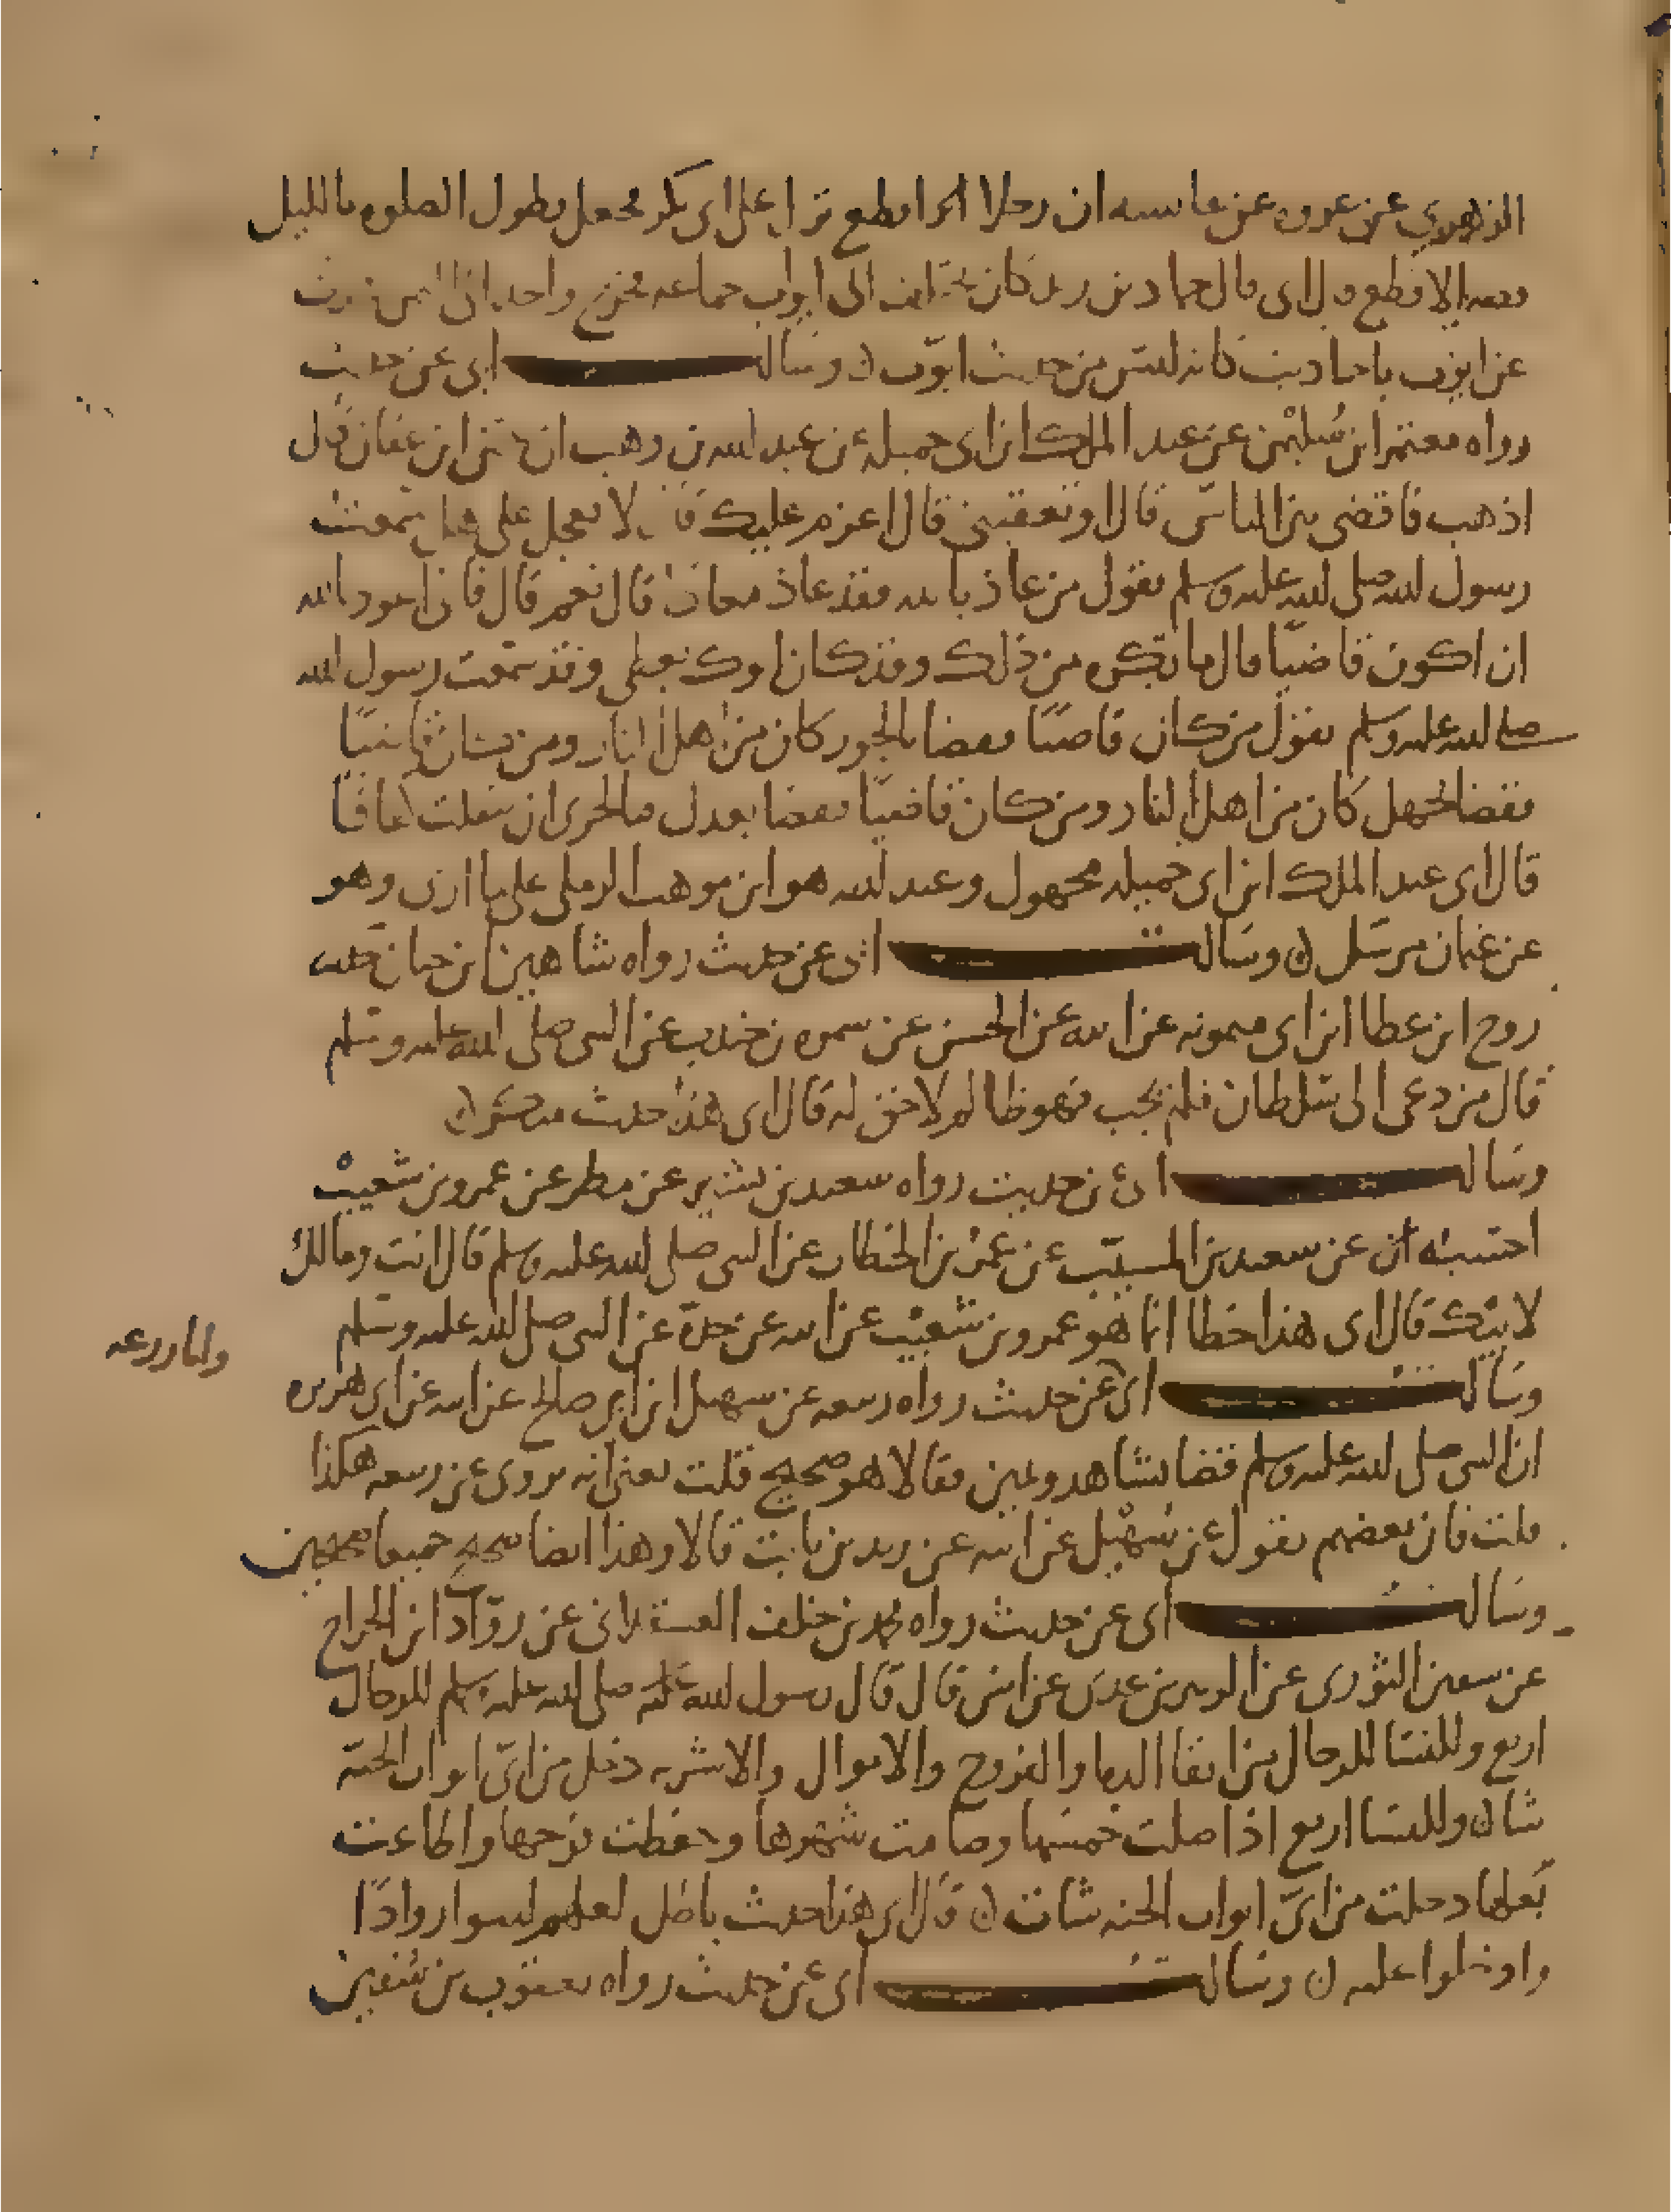 الزهري عن عروة عن عائشة ان رجلا اقطع نزل على ابي بكر فجعل يطول الصلوه بالليل
قصه الاقطع قال ابي قال حماد بن زيد كان يختلف الى ايوب جماعه فخرج واحد اذا هو يحدث
عن ايوب باحاديث كانه ليس من حديث ايوب ن وسالت ابي عن حديث
رواه معتمر ابن سليمن عن عبد الملك ابن ابي جميله عن عبد الله بن وهب ان عثمن ابن عفان قال
اذهب فاقضي بين الناس قال او تعفيني قال اعزم عليك قال لا تعجل علي هل سمعت
رسول الله صلى الله عليه وسلم يقول من عاذ بالله فقد عاذ معاذا قال نعم قال فاني اعوذ بالله
ان اكون قاضيا قال ما تكره من ذلك وقد كان ابوك يقضي وقد سمعت رسول الله
صلى الله عليه وسلم يقول من كان قاضيا فقضا بالجور كان من اهل النار ومن كان قاضيا
فقضا بجهل كان من اهل النار ومن كان قاضيا فقضا بعدل فبالحري ان ينفلت كفافا
قال ابي عبد الملك ابن ابي جميله مجهول وعبد الله هو ابن موهب الرملي على ما ارى وهو
عن عثمان مرسل ن وسالت ابي عن حديث رواه شاهين ابن حيان
روح ابن عطا ابن ابي ميمونه عن ابيه عن الحسن عن سمره بن جندب عن النبي صلى الله عليه وسلم
قال من دعي الى سلطان فلم يجب فهو ظالم لا حق له قال ابي هذا حديث منكر ن
وسالت ابي عن حديث رواه سعيد بن بشير عن مطر عن عمرو بن شعيب
احسبه ان عن سعيد بن المسيب عن عمر بن الخطاب عن النبي صلى الله عليه وسلم قال انت ومالك
لابيك قال ابي هذا خطا انما هو عمرو بن شعيب عن ابيه عن جده عن النبي صلى الله عليه وسلم
وسالت ابي عن حديث رواه ربيعه عن سهيل ابن ابي صالح عن ابيه عن ابي هريره
وابا زرعه
ان النبي صلى الله عليه وسلم قضا بشاهد ويمين فقالا هو صحيح قلت يعني انه يروى عن ربيعه هكذا
قلت فان بعضهم يقول عن سهيل عن ابيه عن زيد بن ثابت قالا وهذا ايضا صحيح جميعا صحيحين
وسالت ابي عن حديث رواه محمد بن خلف العسقلاني عن رواد ابن الجراح
عن سفين الثوري عن الزبير بن عدي عن انس قال قال رسول الله صلى الله عليه وسلم للرجال
اربع وللنسا للرجال من اتقا الدما والفروج والاموال والاشربه دخل من اي ابواب الجنه
شا ن وللنسا اربع اذا صلت خمسها وصامت شهرها وحفظت فرجها واطاعت
بعلها دخلت من اي ابواب الجنه شات ن قال ابي هذا حديث باطل لعلهم لبسوا روادا
وادخلوا عليه ن وسالت ابي عن حديث رواه يعقوب بن سفين